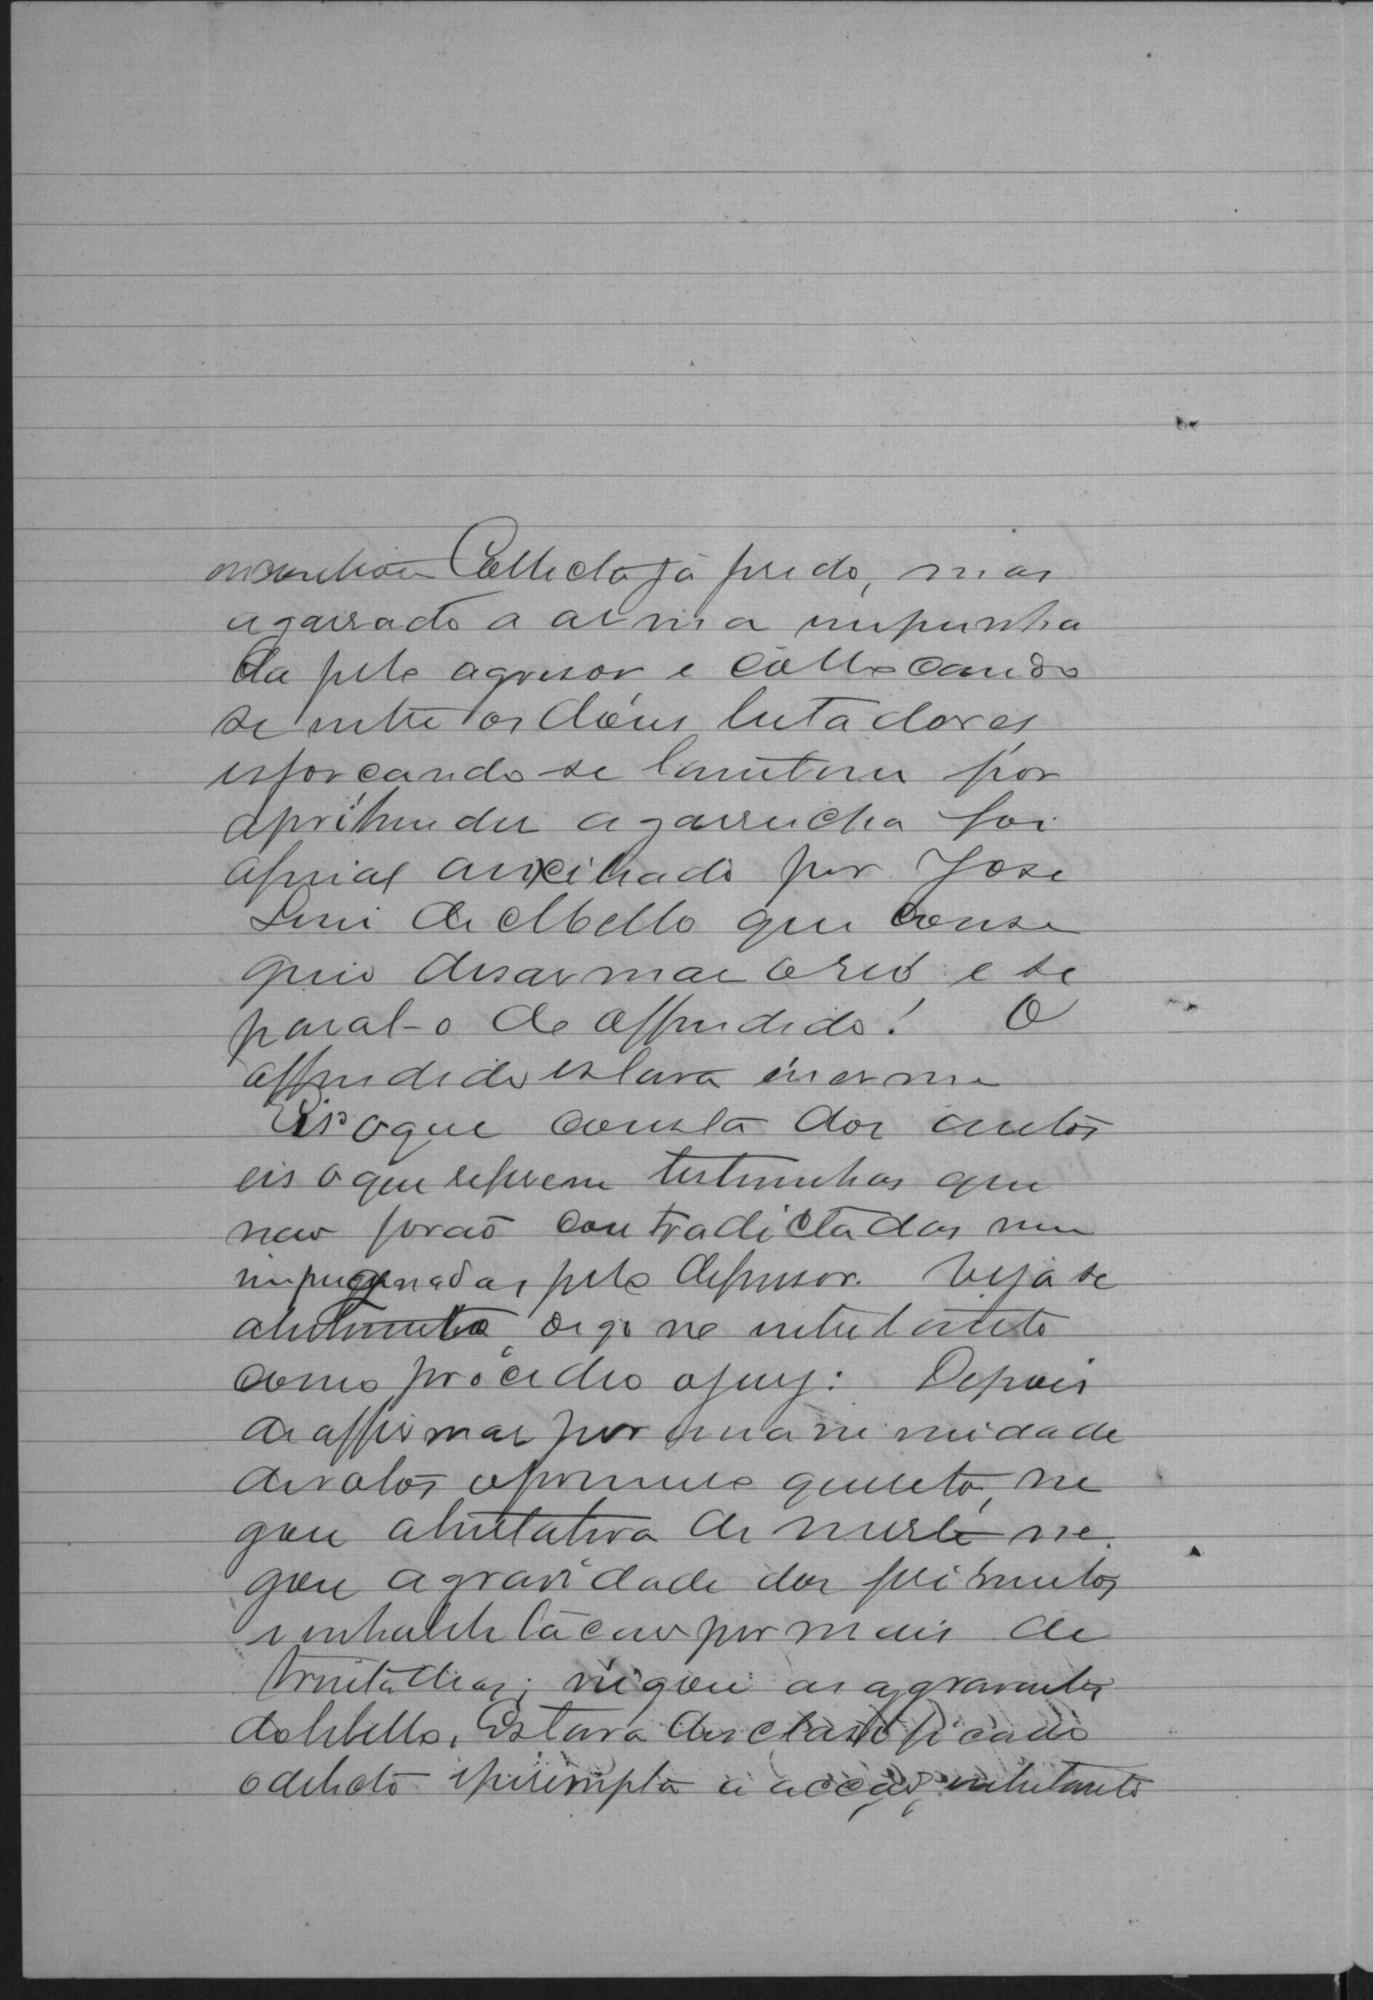 encontrou Collecta já ferido, mas
agarrado a arma empunha
da pelo agressor e collocando
se entre os dous lutadores
esforçando-se tambem por
aprehender a garrucha foi
afinal auxiliado por Jose
Luiz de Mello que conse
guio desarmar o reo e se
paral-o do offendido! O
offendido estava inerme
Eis o que consta dos autos
eis o que referem testemunhas que
nao forão contradictadas nem
impugnadas pelo defensor. Veja se
digo no entretanto
como procedeo o jury: Depois
de affirmar por unanimidade
de votos o primeiro quesito, ne
gou a tentativa de morte ne
gou a gravidade dos ferimentos
e inhabilitação por mais de
trinta dias; negou as aggravantes
do libello. Estava desclassificado
o delicto e perempta a acção, entretanto